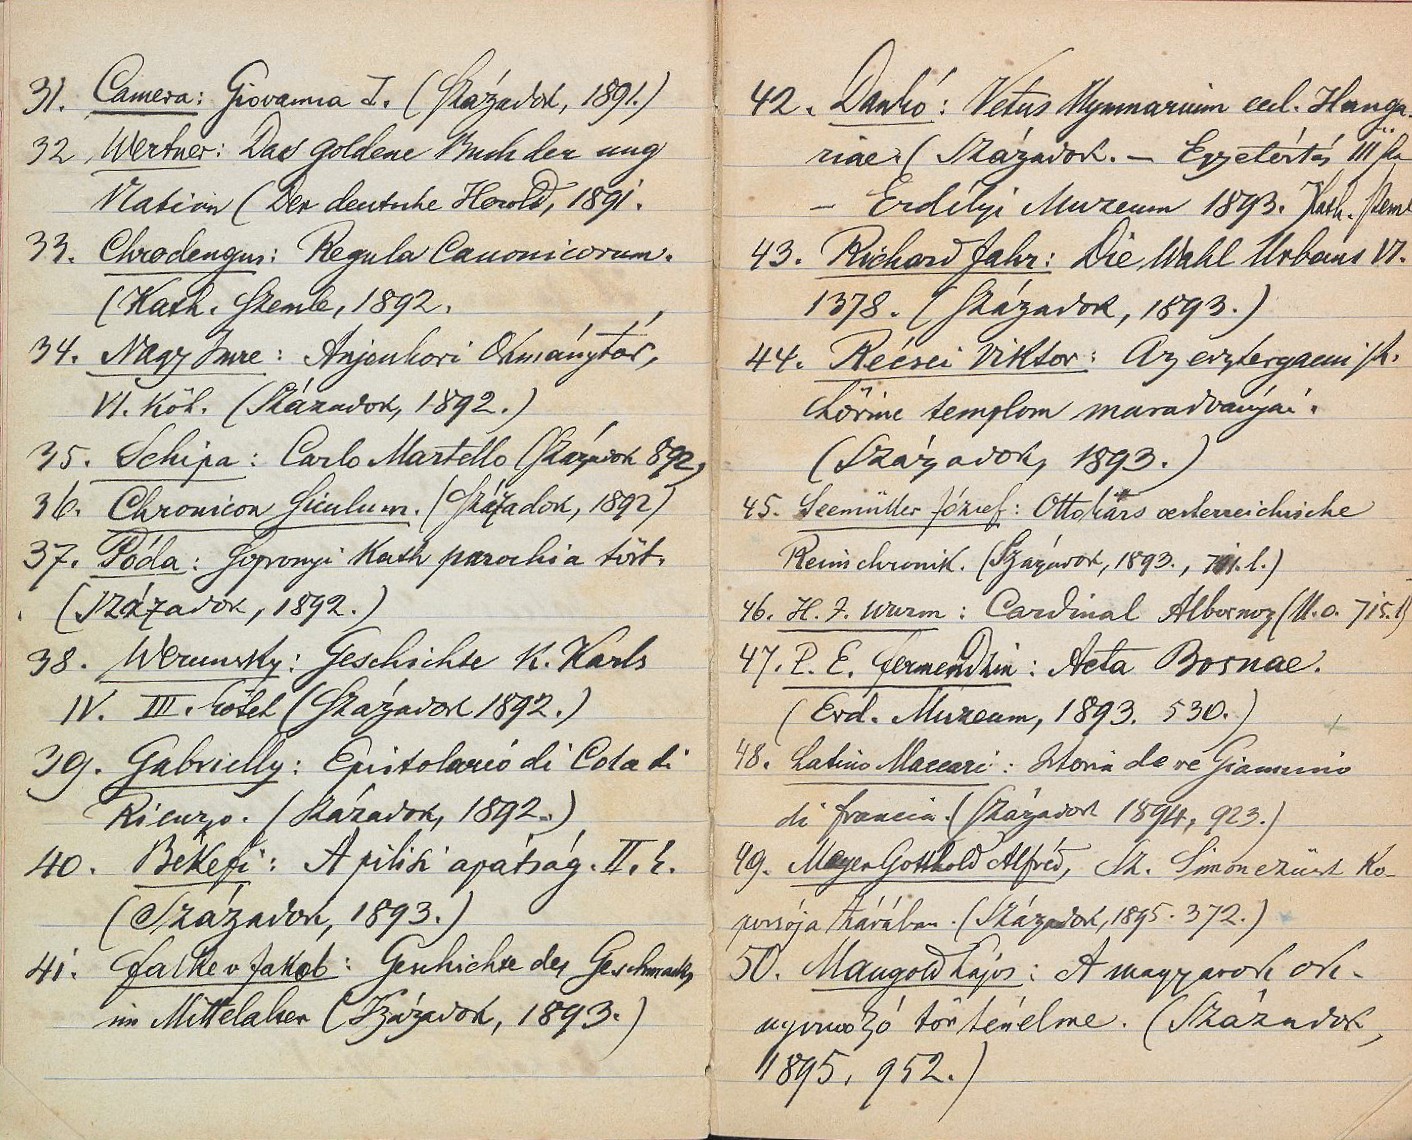 31. Camera: Giovanna I. (Századok, 1891.)
32 Wertner: Das goldene Buch der ung
Nation (Der deutsche Herold, 1891.
33. Chrodengus: Regula Canonicorum.
(Kath. Szemle, 1892.
34. Nagy Imre: Anjoukori Okmánytár,
VI. köt. (Századok, 1892.)
35. Schipa: Carlo Martello (Századok 892,
36. Chronicon Siculum. (Századok, 1892)
37. Póda: Sopronyi Kath parochia tört.
(Századok, 1892.)
38. Werunsky: Geschichte K. Karls
IV. III. kötet (Századok 1892.)
39. Gabrielly: Epistolario di Cola di
Rienzo. (Századok, 1892.)
40. Békefi: A pilisi apátság. II. k.
(Századok, 1893.)
41. Falke v Jakob: Geschichte des Geschmacks
im Mittelalter (Századok, 1893.)
42. Dankó: Vetus Hymnarium eccl. Hunga-
riae. (Századok. — Egyetértés III
— Erdélyi Muzeum 1893. Kath. Szeml
43. Richard Jahr: Die Wahl Urbans VI.
1378. (Századok, 1893.)
44. Récsei Viktor: Az esztergami sz.
Lőrinc templom maradványai.
(Századok, 1893.)
45. Seemüller József: Ottokars oesterreichische
Reimchronik. (Századok, 1893., l.)
46. H. J. Wurm: Cardinal Albornoz (U.o. 715.l)
47. P. E. Fermendzin: Acta Bosnae.
(Erd. Muzeum, 1893. 530.)
48. Latino Maccari: Istoria de re Giannino
di Francia. (Századok 1894, 923.)
49. Meyer Gotthold Alfréd, Sz. Simon ezüst Ko-
porsója Zárában. (Századok, 1895. 372.)
50. Mangold Lajos: A magyarok ok-
nyomozó történelme. (Századok,
1895, 952.)